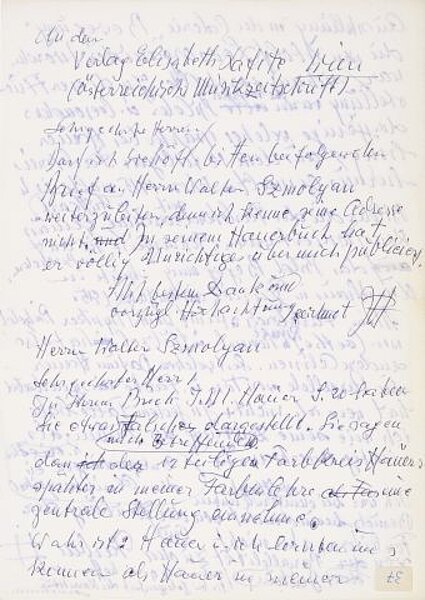 An den
Verlag Elisabeth Lafite Wien
(Österreichische Musikzeitschrift)
Sehr geehrte Herren!
Darf ich Sie höfl. bitten beifolgenden
Brief an Herrn Walter Szmolyan
weiterzuleiten, denn ich kenne seine Adresse
nicht. und In seinem Hauerbuch hat
er völlig Unrichtiges über mich publiciert.
Mit bestem Dank und
vorzügl. Hochachtung zeichnet
Herrn Walter Szmolyan
Sehr geehrter Herr!
In Ihrem Buch J. M. Hauer S. 20 haben
Sie etwas Falsches dargestellt. Sie sagen
(mich Betreffendes)
dem 12 teiligen Farbkreis Hauers
später in meiner Farbenlehre eine
zentrale Stellung einnehme.
Wahr ist: Hauer u. ich lernten uns
kennen als Hauer in meiner
37